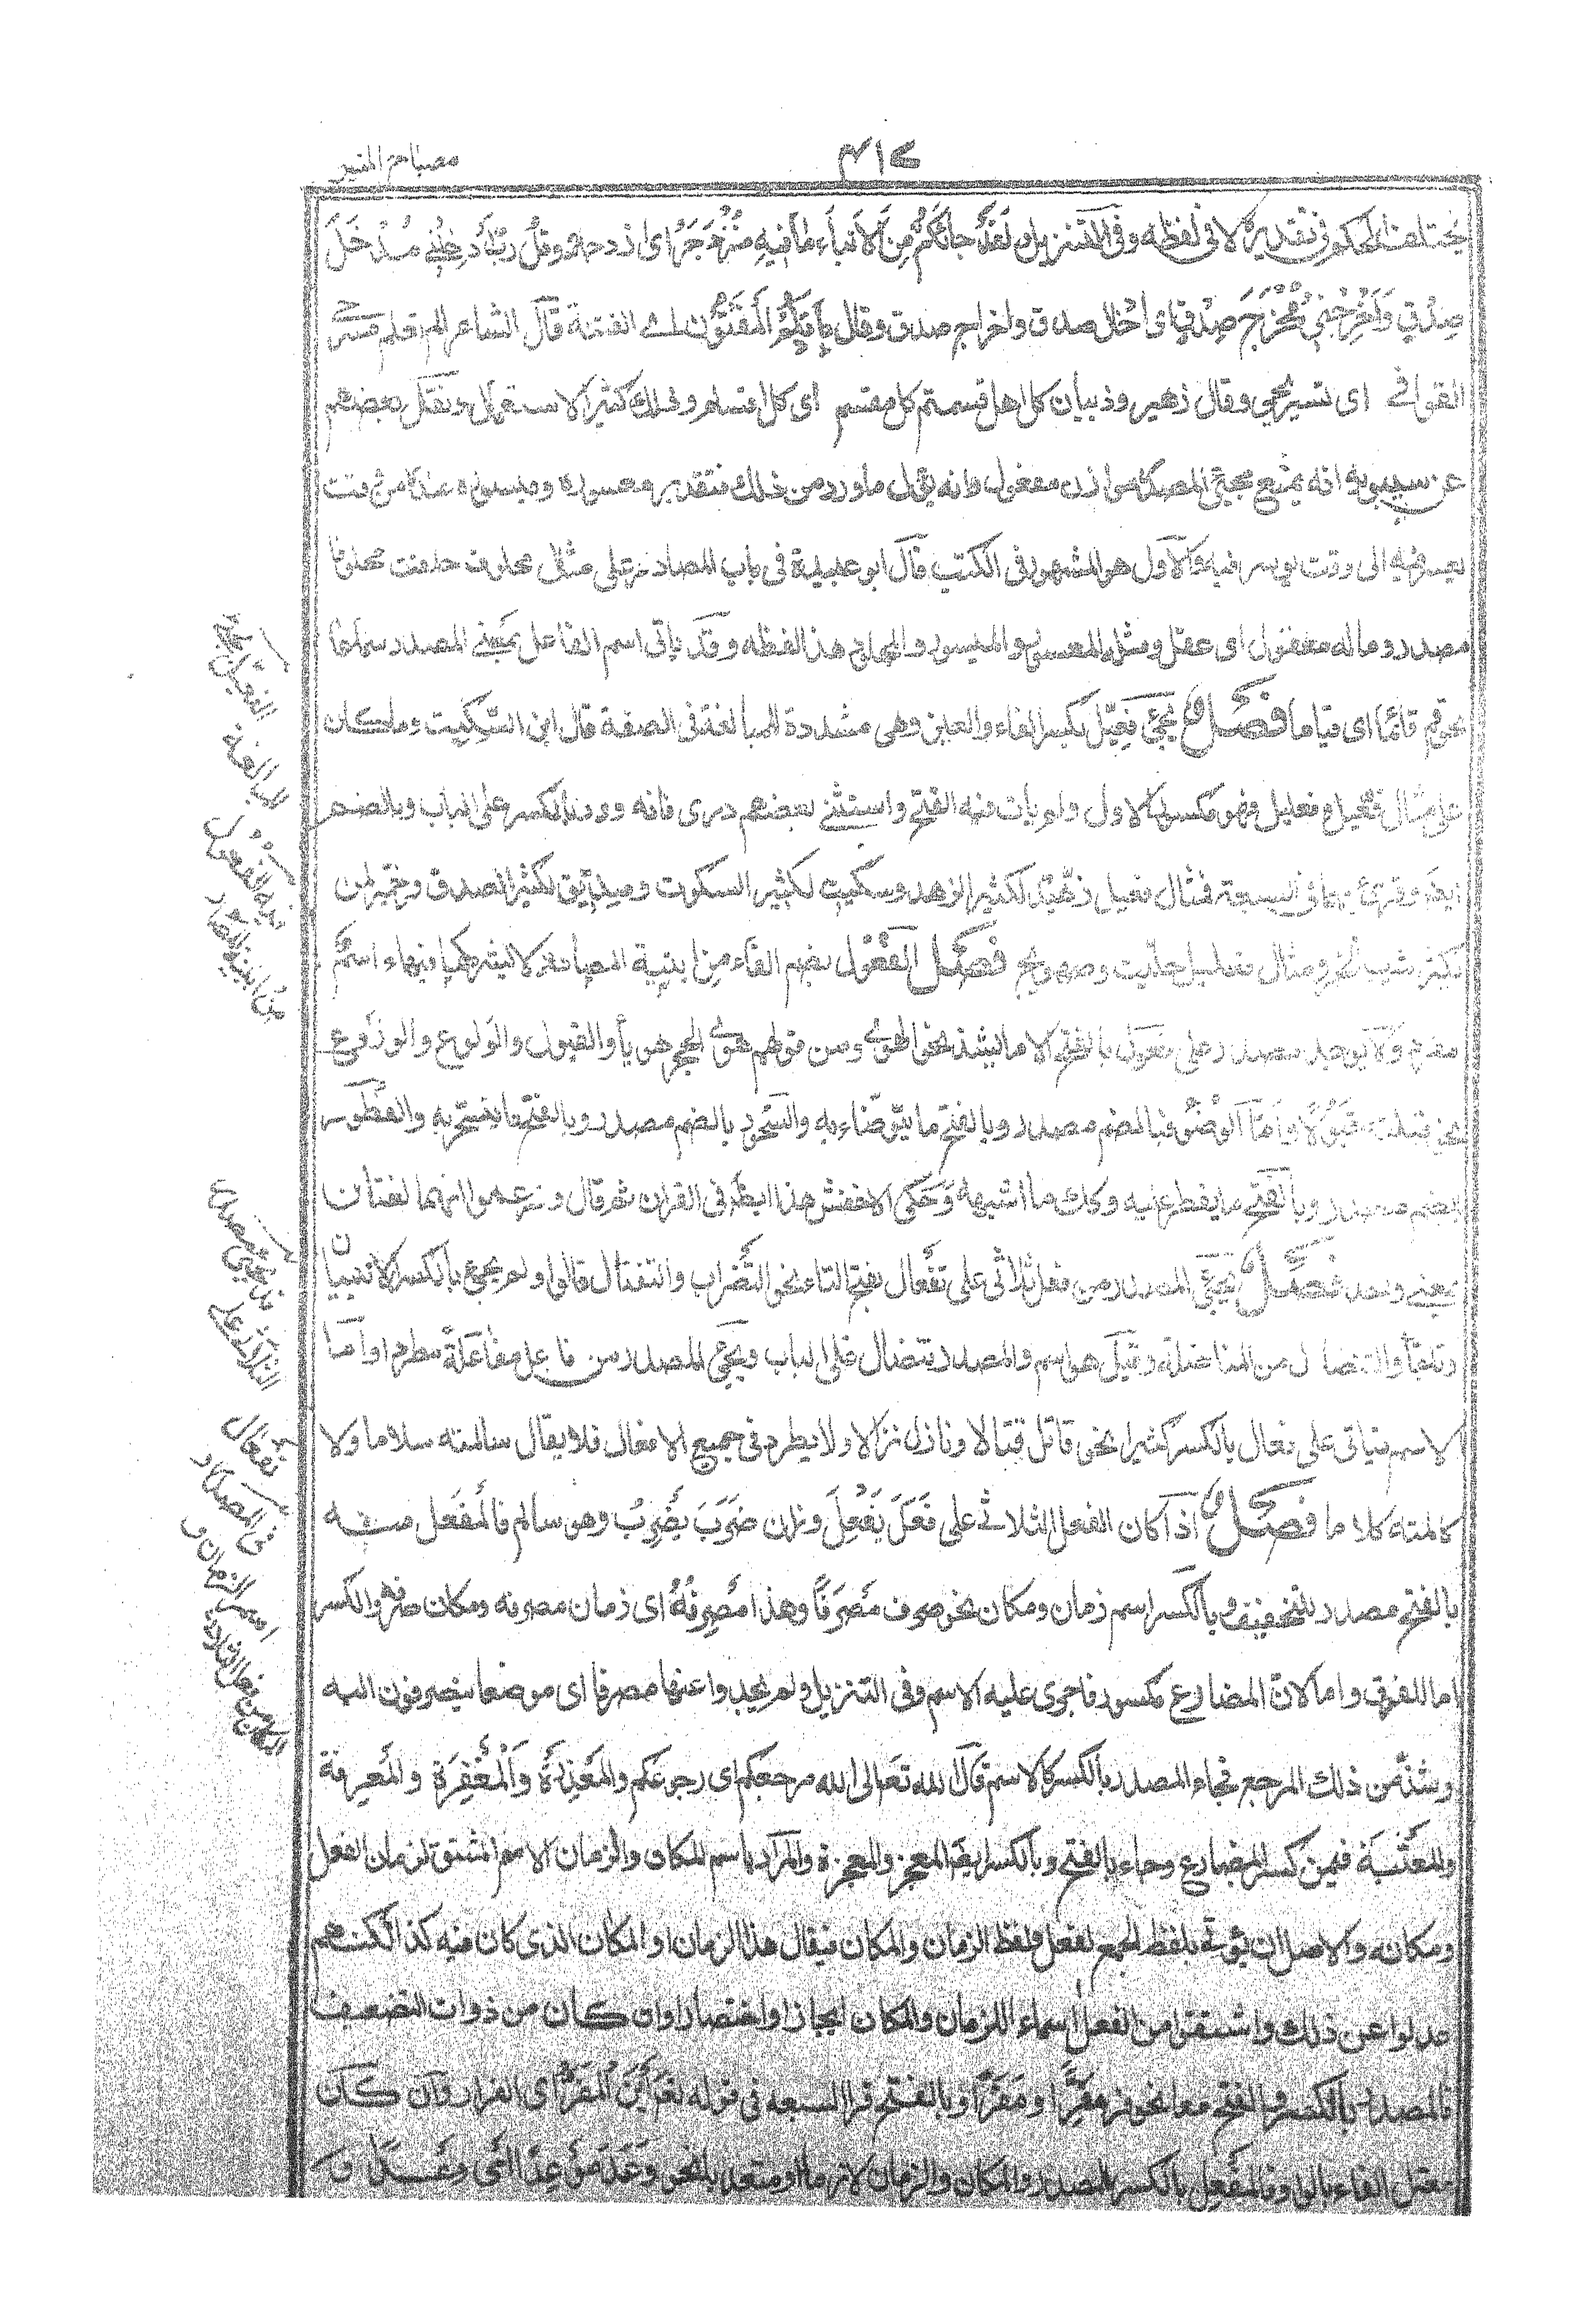 مصباح المنير
٤١٢
يختلف الحكم في تقديره لا في لفظه وفي التنزيل ولقد جاءكم من الانباء ما فيه مزدجر اى ازدجار وقل رب ادخلني مدخل
صدق وَاَخرجنى مُخْرَجَ صِدْقٍ اى ادخال صدق واخراج صدق وقال بأيكم المفتون اى الفتنة قال الشاعر الم تعلم مسرحى
القوافي اى تسريحى وقال زهير وذبيان كل اهل قسمتم كل مقسم اى كل اقسام وذلك كثير الاستعمال ونقل بعضهم
عن سيبويه انه يمنع مجئ المصدر موازن مفعول وانه يؤول ما ورد من ذلك فتقدير معسوره وميسوره عنده من وقت
يعسر فيه الى وقت يوسر فيه والاول هو المشهور فى الكتب قال ابو عبيدة فى باب المصادر على مثال محلوف حلفت محلوفا
مصدر وماله معقول اى عقل ومثله المعسور والميسور والمجلود هذا لفظه وقد ياتى اسم الفاعل بمعنى المصدر سماعا
نحو قم قائما اى قياما فصل يجئ فِعِّيل بكسر الفاء والعين وهى مشددة للمبالغة فى الصفة قال ابن السكيت وما كان
على مثال فعيل او فعليل فهو مكسور الاول ولم يأت فيه الفتح واستثنى بعضهم درى فانه ورد بالكسر على الباب وبالضم
ايضا وقرئ بهما فى السبعة فمثال فعيل زهيد لكثير الزهد وسكيت لكثير السكوت وصديق لكثير الصدق وخمير لمن
يكثر شرب الخمر ومثال فعليل حلتيت وصهريج فصل الفعول بضم الفاء من ابنية المصادر لا يشركها فيها اسم
مفرد ولا يوجد مصدر على فعول بالفتح الا ما شذ نحو الهوى ومن قولهم هوى الحجر هويا والقبول والولوع والوزوع
نحو قبلت قبولا واما الوضوء فبالضم مصدر وبالفتح ما يتوضاء به والسحور بالضم مصدر وبالفتح ما يتسحر به والفطور
بالضم مصدر وبالفتح ما يفطر عليه وكك ما اشبهه وحكى الاخفش هذا ايضا فى القران ثم قال وزعموا انهما لغتان
بمعنى واحد فصل يجئ المصدر من فعل ثلاثى على تَفعال بفتح التاء نحو التضراب والتقتال قالوا ولم يجئ بالكسر الا تبيان
وتلقاء والتنضال من المناضلة وقيل هو اسم والمصدر تنضال على الباب ويجئ المصدر من فاعل مفاعلة مطردا واما
الاسم فياتى على فعال بالكسر كثيرا نحو قاتل قتالا ونازل نزالا ولا يطرد فى جميع الافعال فلا يقال سالمته سلاما ولا
كالمته كلاما فصل اذا كان الفعل الثلاثي على فَعَلَ يَفْعِلَ وزان ضَرَبَ يَضْرِبُ وهو سالم فالمفعل منه
بالفتح مصدر للتخفيف وبالكسر اسم زمان ومكان نحو صرف مَصْرَفًا وهذا مَصْرِفُهُ اى زمان صرفه ومكان صرفه والكسر
اما للفرق واما لان المضارع مكسور فاجرى عليه الاسم وفى التنزيل ولم يجدوا عنها مصرفا اى موضعا ينصرفون اليه
وشذ من ذلك المرجع فجاء المصدر بالكسر كالاسم قال الله تعالى الى الله مرجعكم اى رجوعكم والمعذرة والمغفرة والمعرفة
والمعتبة فيمن كسر المضارع وجاء بالفتح وبالكسر ايضا المعجز والمعجزة والمراد باسم المكان والزمان الاسم المشتق لزمان الفعل
ومكانه والاصل ان يؤتى بلفظ الجمع لفعل ولفظ الزمان والمكان فيقال هذا الزمان او المكان الذى كان فيه كذا لكنهم
عدلوا عن ذلك واشتقوا من الفعل اسماء للزمان والمكان ايجازا واختصارا وان كان من ذوات التضعيف
فالمصدر بالكسر والفتح معا نحو فر مَفِرًّا ومَفَرًّا وبالفتح قرا السبعه فى قوله تعالى اَيْنَ الْمَفَرُّ اى الفرار وان كان
معتل الفاء بالواو فالمفعل بالكسر للمصدر والمكان والزمان لازما او متعديا نحو وَعَدَ مَوْعِدًا اى وعدا و
الفعيل يجئ
للمبالغة
الفعول
من ابنية المصادر
الثلاثى على
تفعال
من المصدر
اسم الزمان و
المكان من فعل الثلاثى